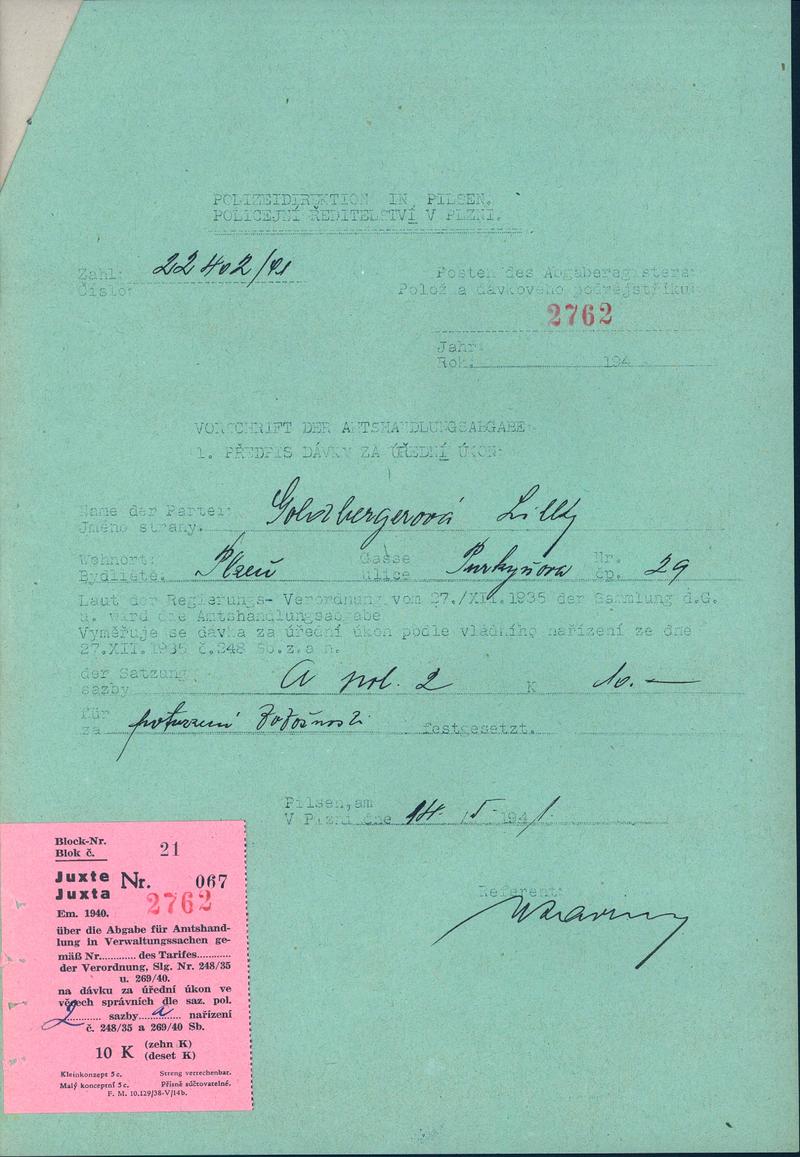 POLIZEIDIREKTION IN PILSEN.
POLICEJNÍ ŘEDITELSTVÍ V PLZNI.
Zahl: 22402/41
Číslo:
Posten des Abgaberegisters:
Položka dávkového podrejstříku:
2762
Jahr
Rok. 194
VORSCHRIFT DER AMTSHANDLUNGSABGABE:
1. PŘEDPIS DÁVKY ZA ÚŘEDNÍ ÚKON:
Name der Partei: Goldbergerová Lilly
Jméno strany.
Wohnort: Plzeň Gasse Purkyňova Nr. 29
Bydliště. ulice čp.
Laut der Regierungs- Verordnung vom 27./XII.1935 der Sammlung d.G.
u. wird die Amtshandlungsabgabe
Vyměřuje se dávka za úřední úkon podle vládního nařízení ze dne
27.XII.1935 č.248 Sb.z.a n.
der Satzung A pol. 2 K 10.—
sazby
für potvrzení totožnosti festgesetzt.
za
Pilsen, am
V Plzni dne 14. 5. 1941
Referent:
Block-Nr. 21
Blok č.
Juxte Nr. 067
Juxta 2762
Em. 1940.
über die Abgabe für Amtshand-
lung in Verwaltungssachen ge-
mäß Nr............ des Tarifes...........
der Verordnung, Slg. Nr. 248/35
u. 269/40.
na dávku za úřední úkon ve
věcech správních dle saz. pol.
2 sazby a nařízení
č. 248/35 a 269/40 Sb.
10 K (zehn K)
(deset K)
Kleinkonzept 5 c. Streng verrechenbar.
Malý konceptní 5 c. Přísně súčtovatelné.
F. M. 10.129/38-V/14b.